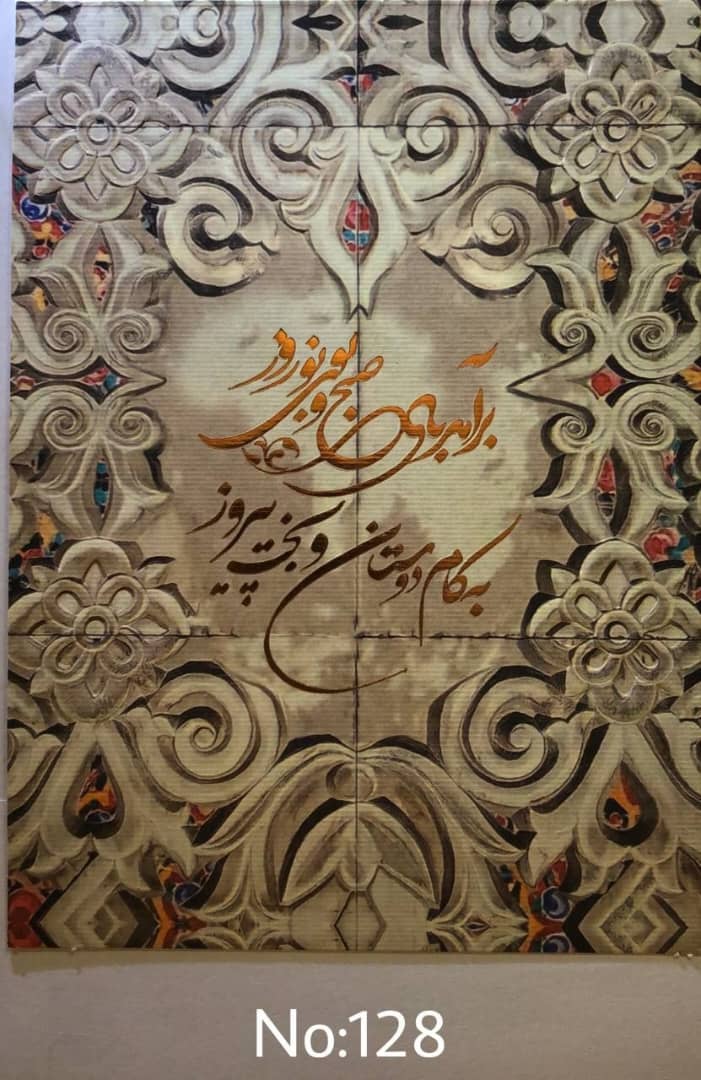 برآمد باد صبح و بوی نوروز
به کام دوستان و بخت پیروز
No:128